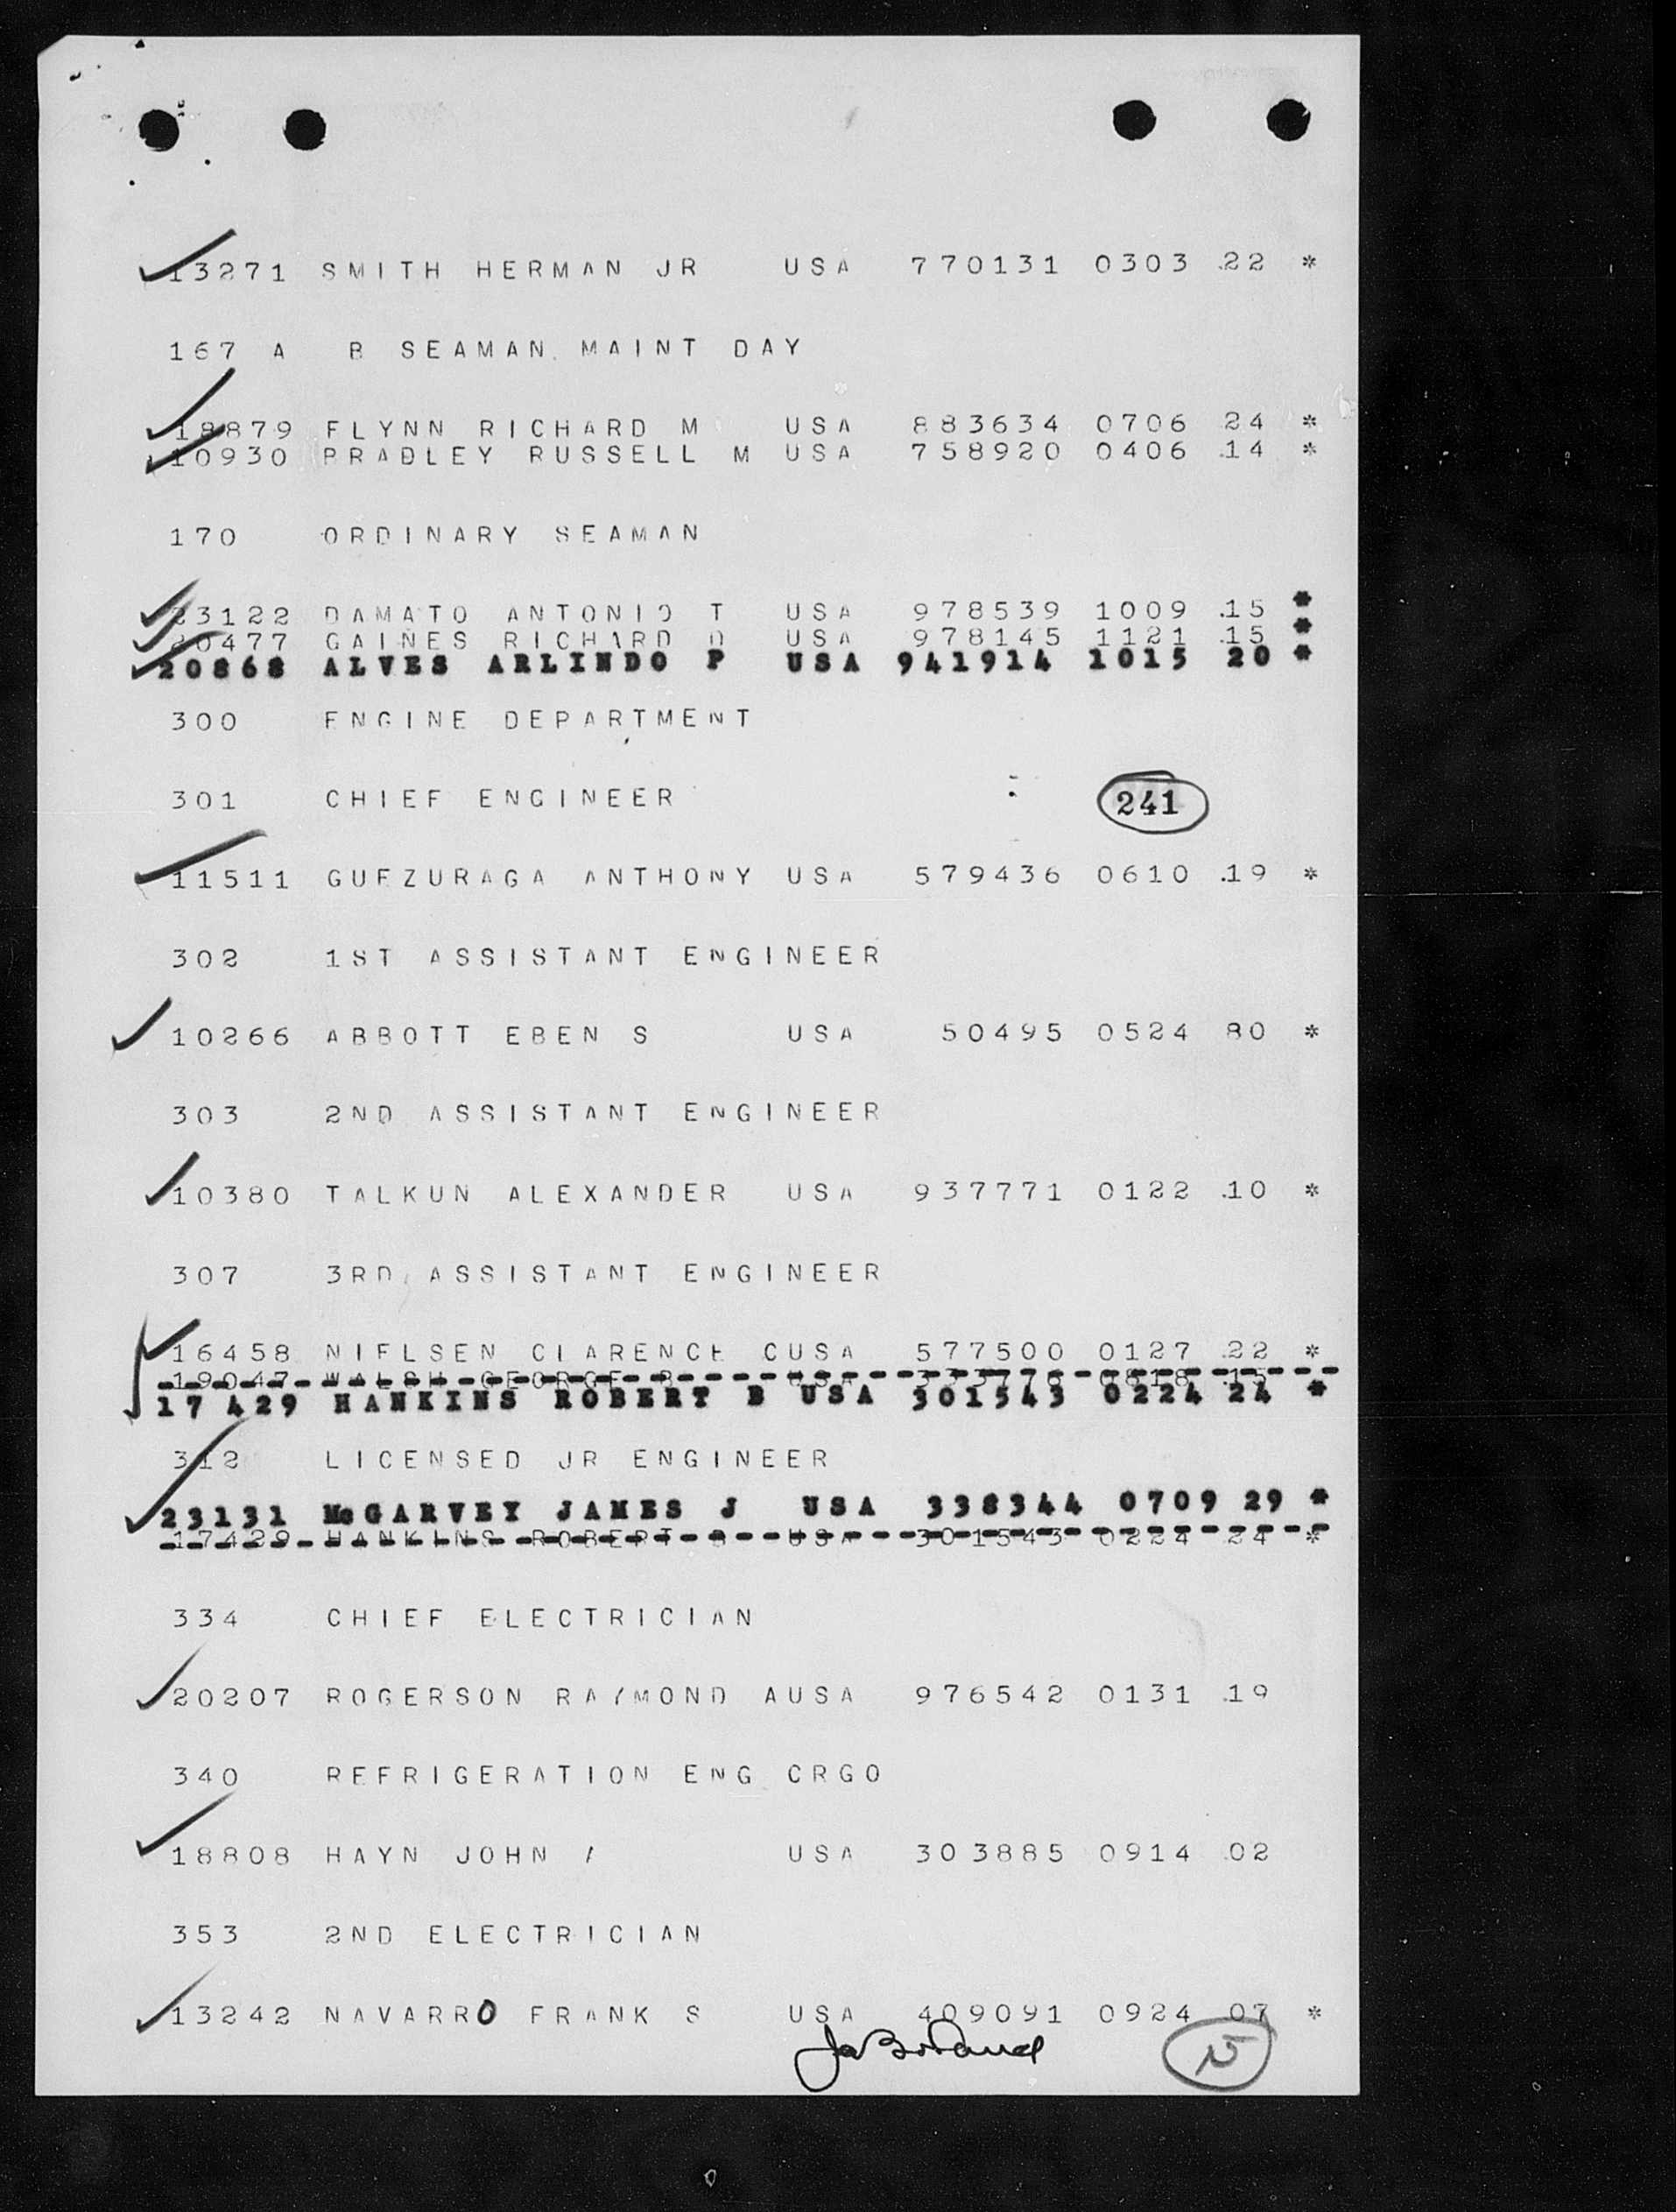 13271 SMITH HERMAN JR USA 770131 0303 22 *
167 A B SEAMAN MAINT DAY
18879 FLYNN RICHARD M USA 883634 0706 24 *
10930 BRADLEY RUSSELL M USA 758920 0406 14 *
170 ORDINARY SEAMAN
23122 DAMATO ANTONIO T USA 978539 1009 15 *
20477 GAINES RICHARD D USA 978145 1121 15 *
20868 ALVES ARLINDO P USA 941914 1015 20 *
300 ENGINE DEPARTMENT
301 CHIEF ENGINEER 241
11511 GUEZURAGA ANTHONY USA 579436 0610 19 *
302 1ST ASSISTANT ENGINEER
10266 ABBOTT EBEN S USA 50495 0524 80 *
303 2ND ASSISTANT ENGINEER
10380 TALKUN ALEXANDER USA 937771 0122 10 *
307 3RD ASSISTANT ENGINEER
16458 NIELSEN CLARENCE C USA 577500 0127 22 *
19047 WALSH GEORGE USA
17 429 HANKINS ROBERT B USA 301543 0224 24 *
312 LICENSED JR ENGINEER
23131 McGARVEY JAMES J USA 338344 0709 29 *
17429 HANKINS ROBERT B USA 301543 0224 24 *
334 CHIEF ELECTRICIAN
20207 ROGERSON RAYMOND A USA 976542 0131 19
340 REFRIGERATION ENG CRGO
18808 HAYN JOHN USA 303885 0914 02
353 2ND ELECTRICIAN
13242 NAVARRO FRANK S USA 409091 0924 07 *